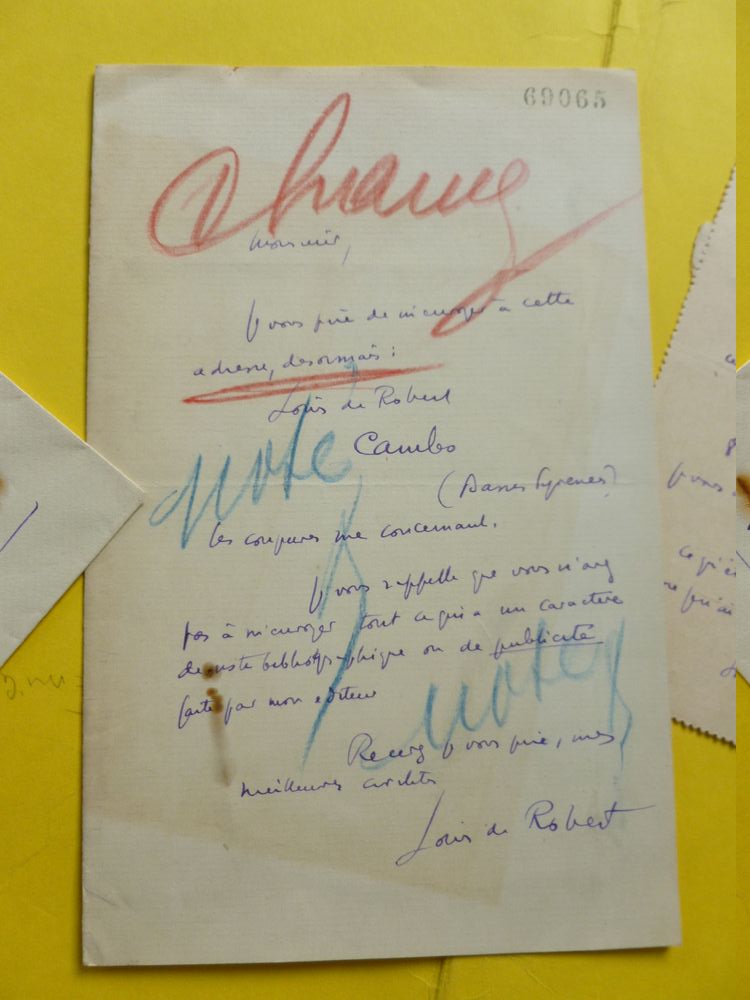 69065
Monsieur,
Je vous prie de m'envoyer à cette
adresse, desormais :
Louis de Robert
Cambo
(Basses Pyrenees)
note
les coupures me concernant.
Je vous rappelle que vous n'avez
pas à m'envoyer tout ce qui a un caractère
de liste bibliographique ou de publicité
faite par mon editeur
notez
Recevez je vous prie, mes
meilleures civilités
Louis de Robert